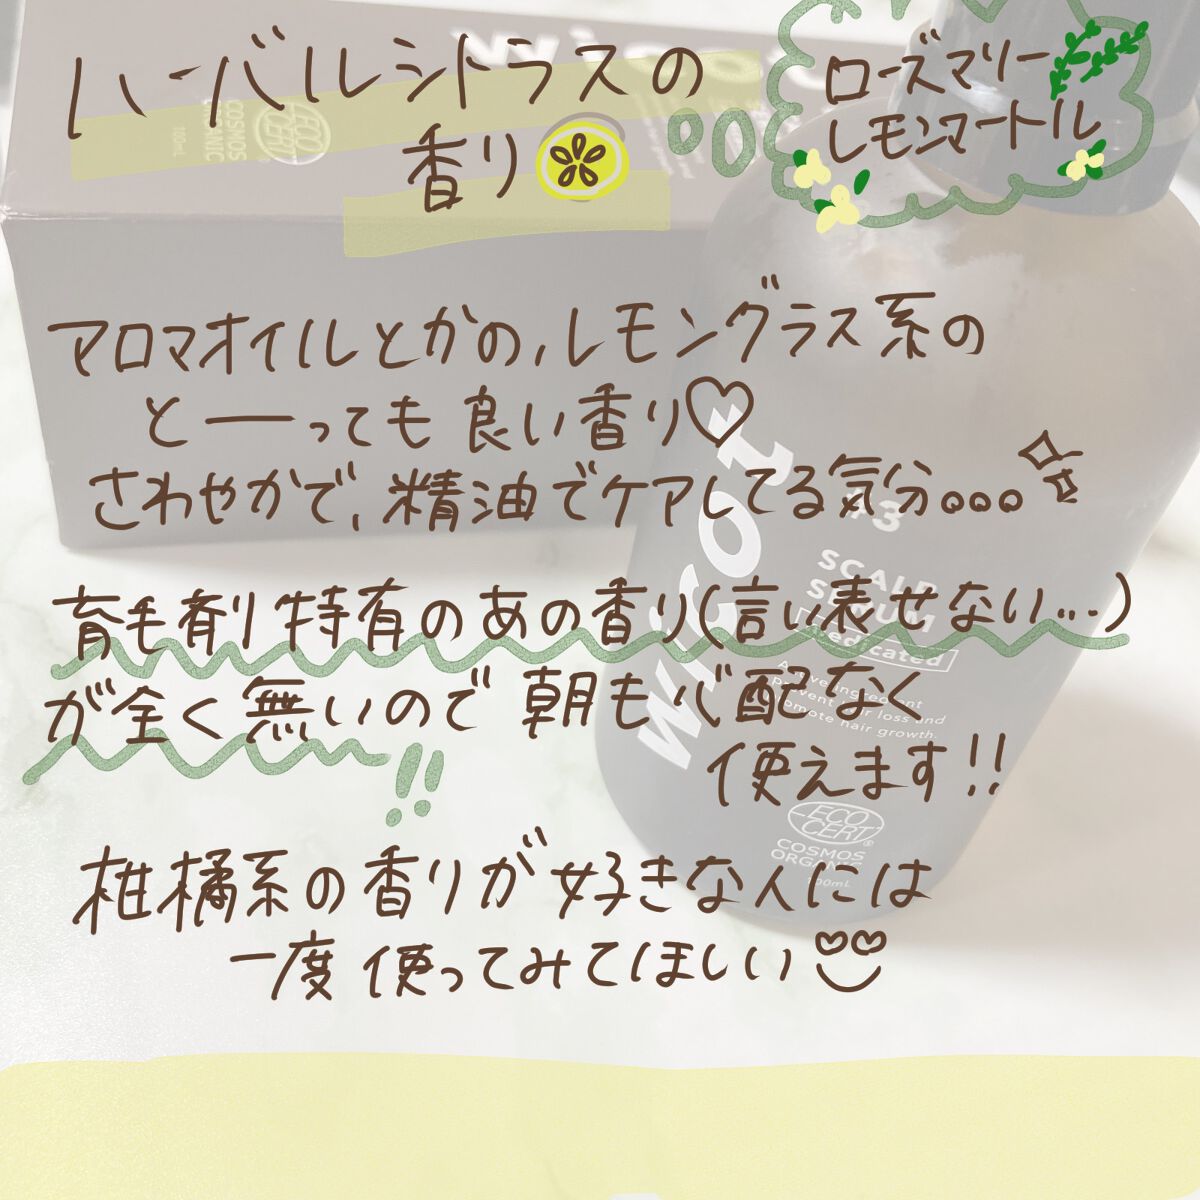 ハーバルシトラスの
香り
ローズマリー
レモンマートル
アロマオイルとかの,レモングラス系の
とーーっても良い香り♡
さわやかで,精油でケアしてる気分。。。
育毛剤特有のあの香り(言い表せない…)
が全く無いので朝も心配なく
使えます!!
!!
柑橘系の香りが好きな人には
一度使ってみてほしい
wicot
#3
SCALP
SERUM
Medicated
Active ingredient
prevent hair loss and
promote hair growth.
ECO
CERT
COSMOS
ORGANIC
100mL
ECO
CERT
COSMOS
ORGANIC
100mL